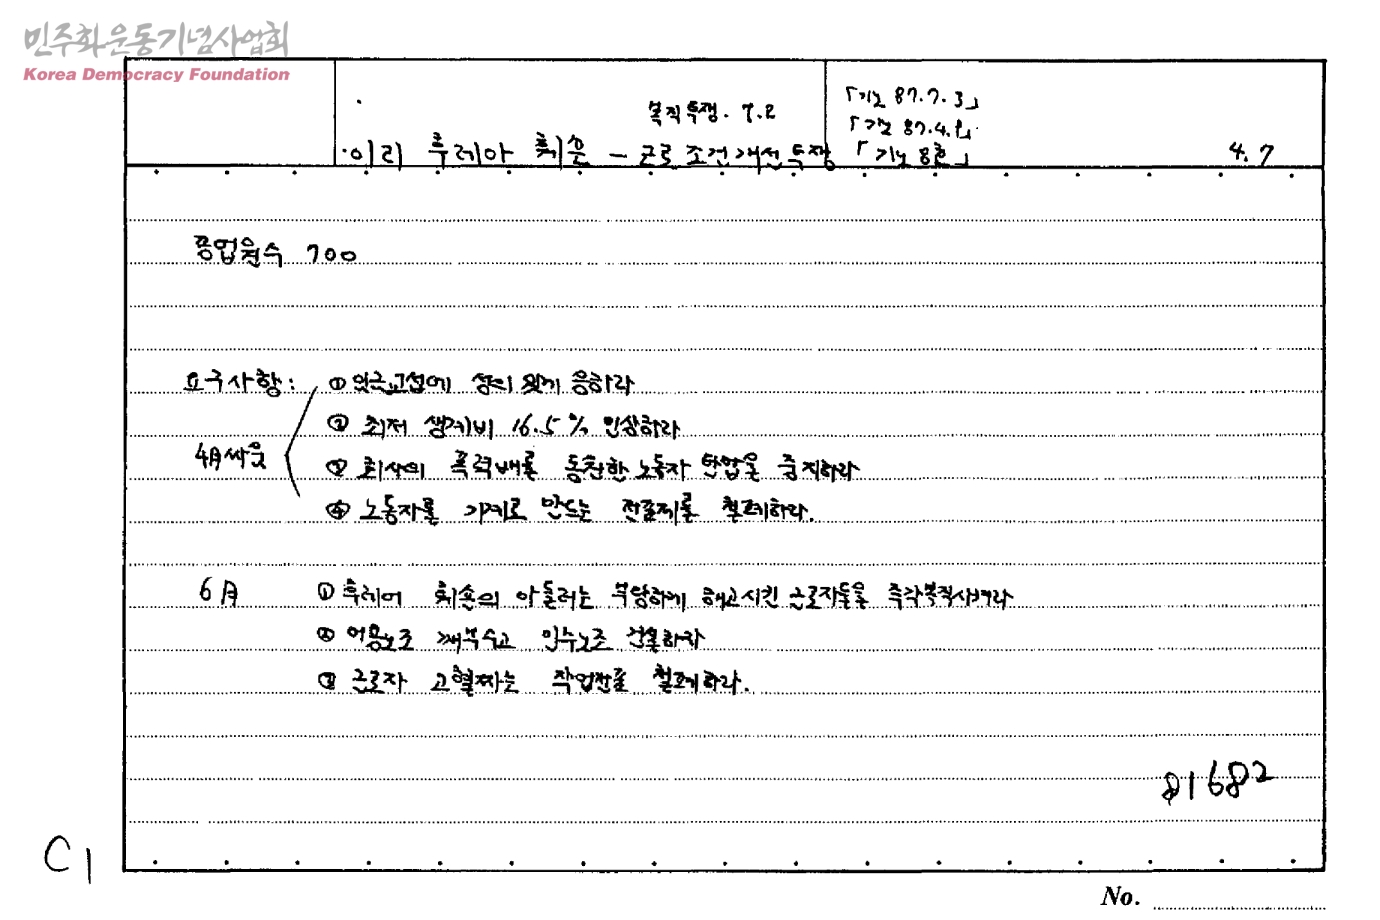 민주화운동기념사업회
Korea Democracy Foundation
복직투쟁. 7.2
「기노 87.7.3」
「기노 87.4.8」
이리 후레아 훼숀 - 근로조건개선투쟁 「기노 8호」 4.7
종업원수 700
요구사항: ① 임금교섭에 성의 있게 응하라
② 최저 생계비 16.5% 인상하라
4月싸움 ③ 회사의 폭력배를 동원한 노동자 탄압을 중지하라
④ 노동자를 기계로 만드는 전표제를 철폐하라.
6月 ① 후레아 훼숀의 아들러는 부당하게 해고시킨 근로자들을 즉각복직시켜라
② 어용노조 깨부수고 민주노조 건설하라
③ 근로자 고혈짜는 작업전표 철폐하라.
81682
C1
No.